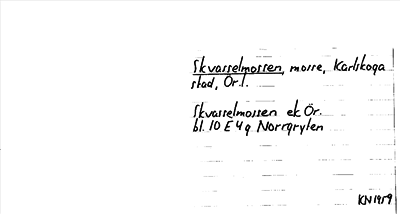 Skvasselmossen, mosse, Karlskoga
stad, Ör.l.
Skvasselmossen ek Ör.
bl. 10 E 4 g Norrgrylen
KN 1959